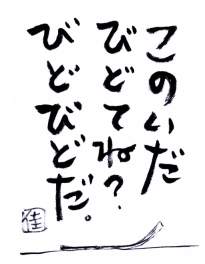 このいだ
びどてね?
びどびどだ。
佳